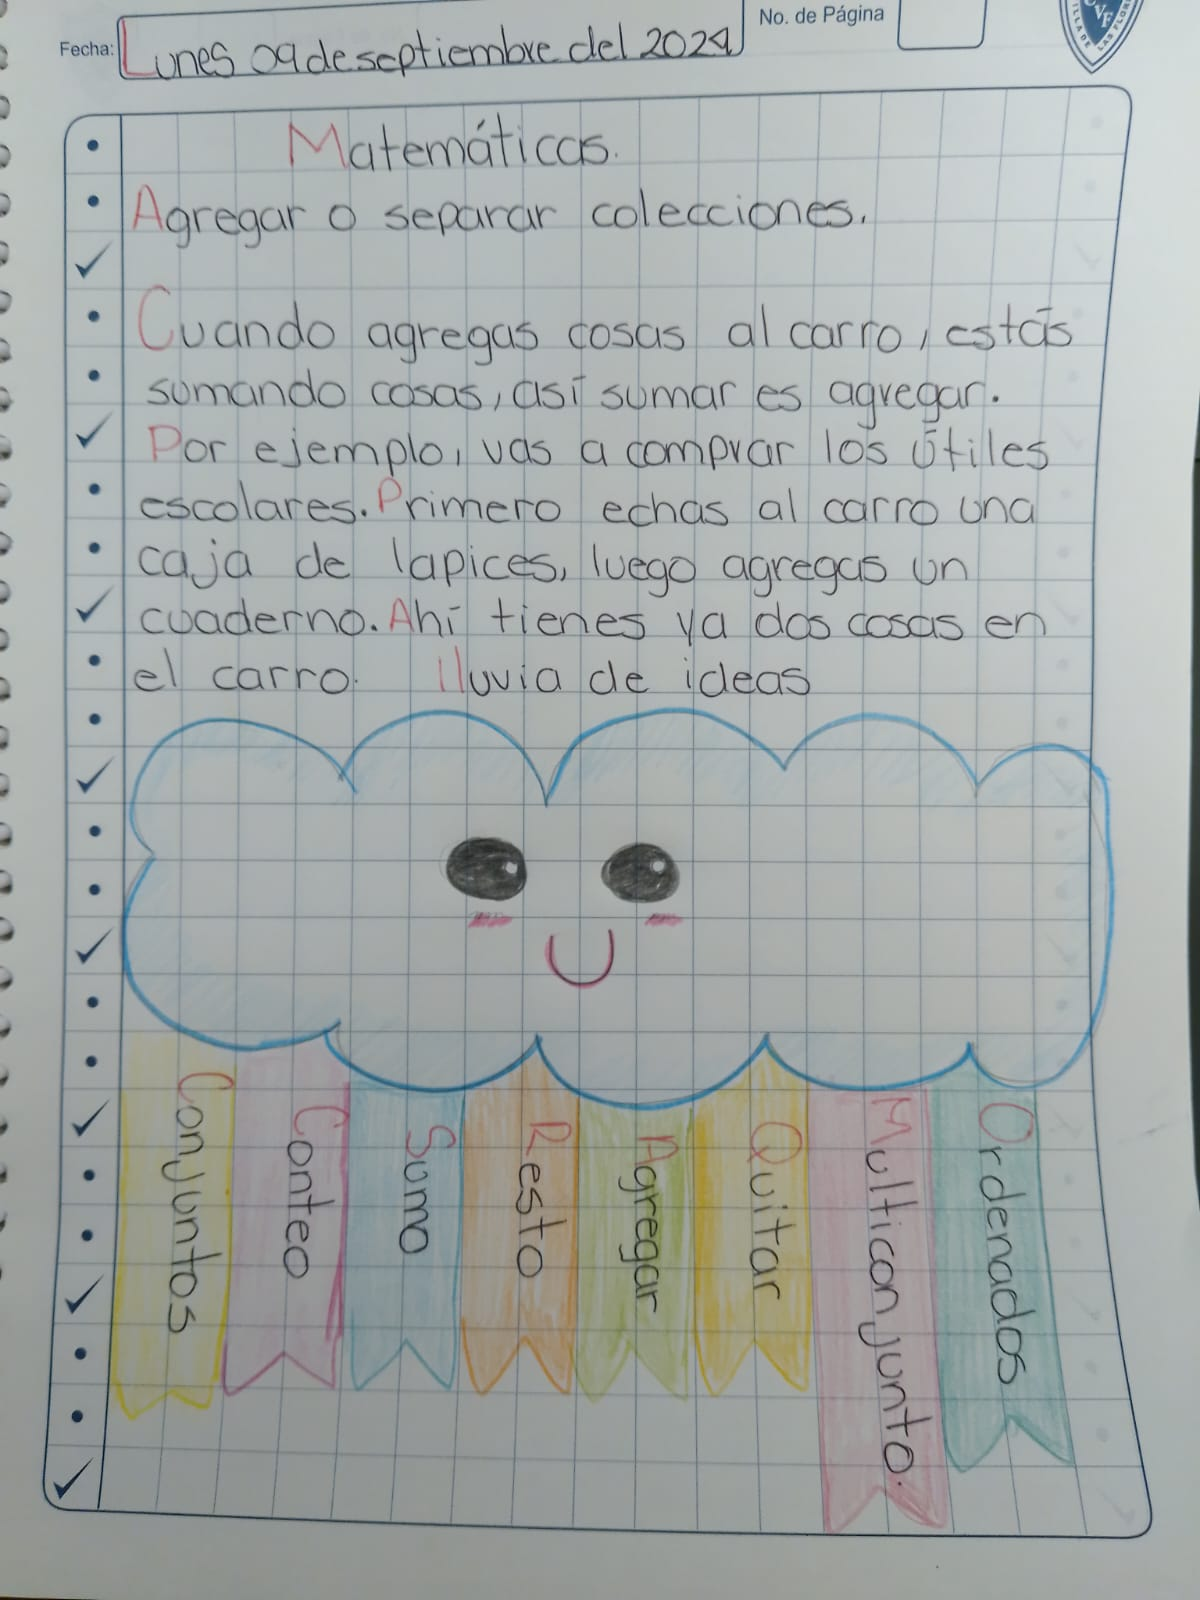 No. de Página
Fecha: Lunes 09 de septiembre del 2024
Matemáticas.
Agregar o separar colecciones.
Cuando agregas cosas al carro, estás
sumando cosas, así sumar es agregar.
Por ejemplo, vas a comprar los útiles
escolares. Primero echas al carro una
caja de lapices, luego agregas un
cuaderno. Ahí tienes ya dos cosas en
el carro. lluvia de ideas
Conjuntos
Conteo
Sumo
Resto
Agregar
Quitar
Multiconjunto.
Ordenados